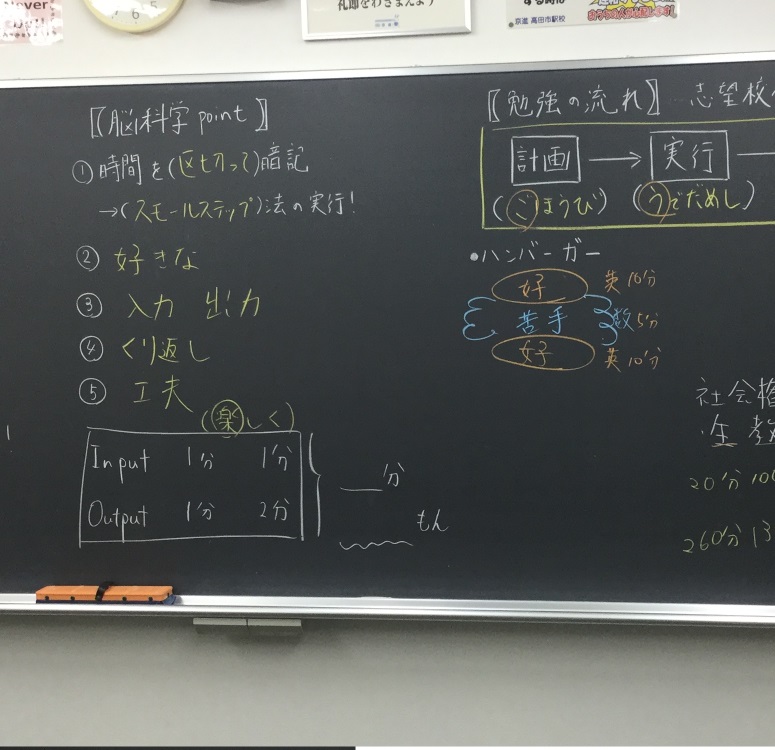 Never
6 5
礼節をわきまえよう
京進 高田市駅校
【脳科学point】
①時間を(区切って)暗記
→(スモールステップ)法の実行!
② 好きな
③ 入力 出力
④ くり返し
⑤ 工夫
(楽しく)
Input 1分 1分
Output 1分 2分
__分
もん
【勉強の流れ】 志望校
計画 → 実行
(ごほうび) (うでだめし)
•ハンバーガー
好 英10分
苦手 数5分
好 英10分
社会
20分 100
260分 13